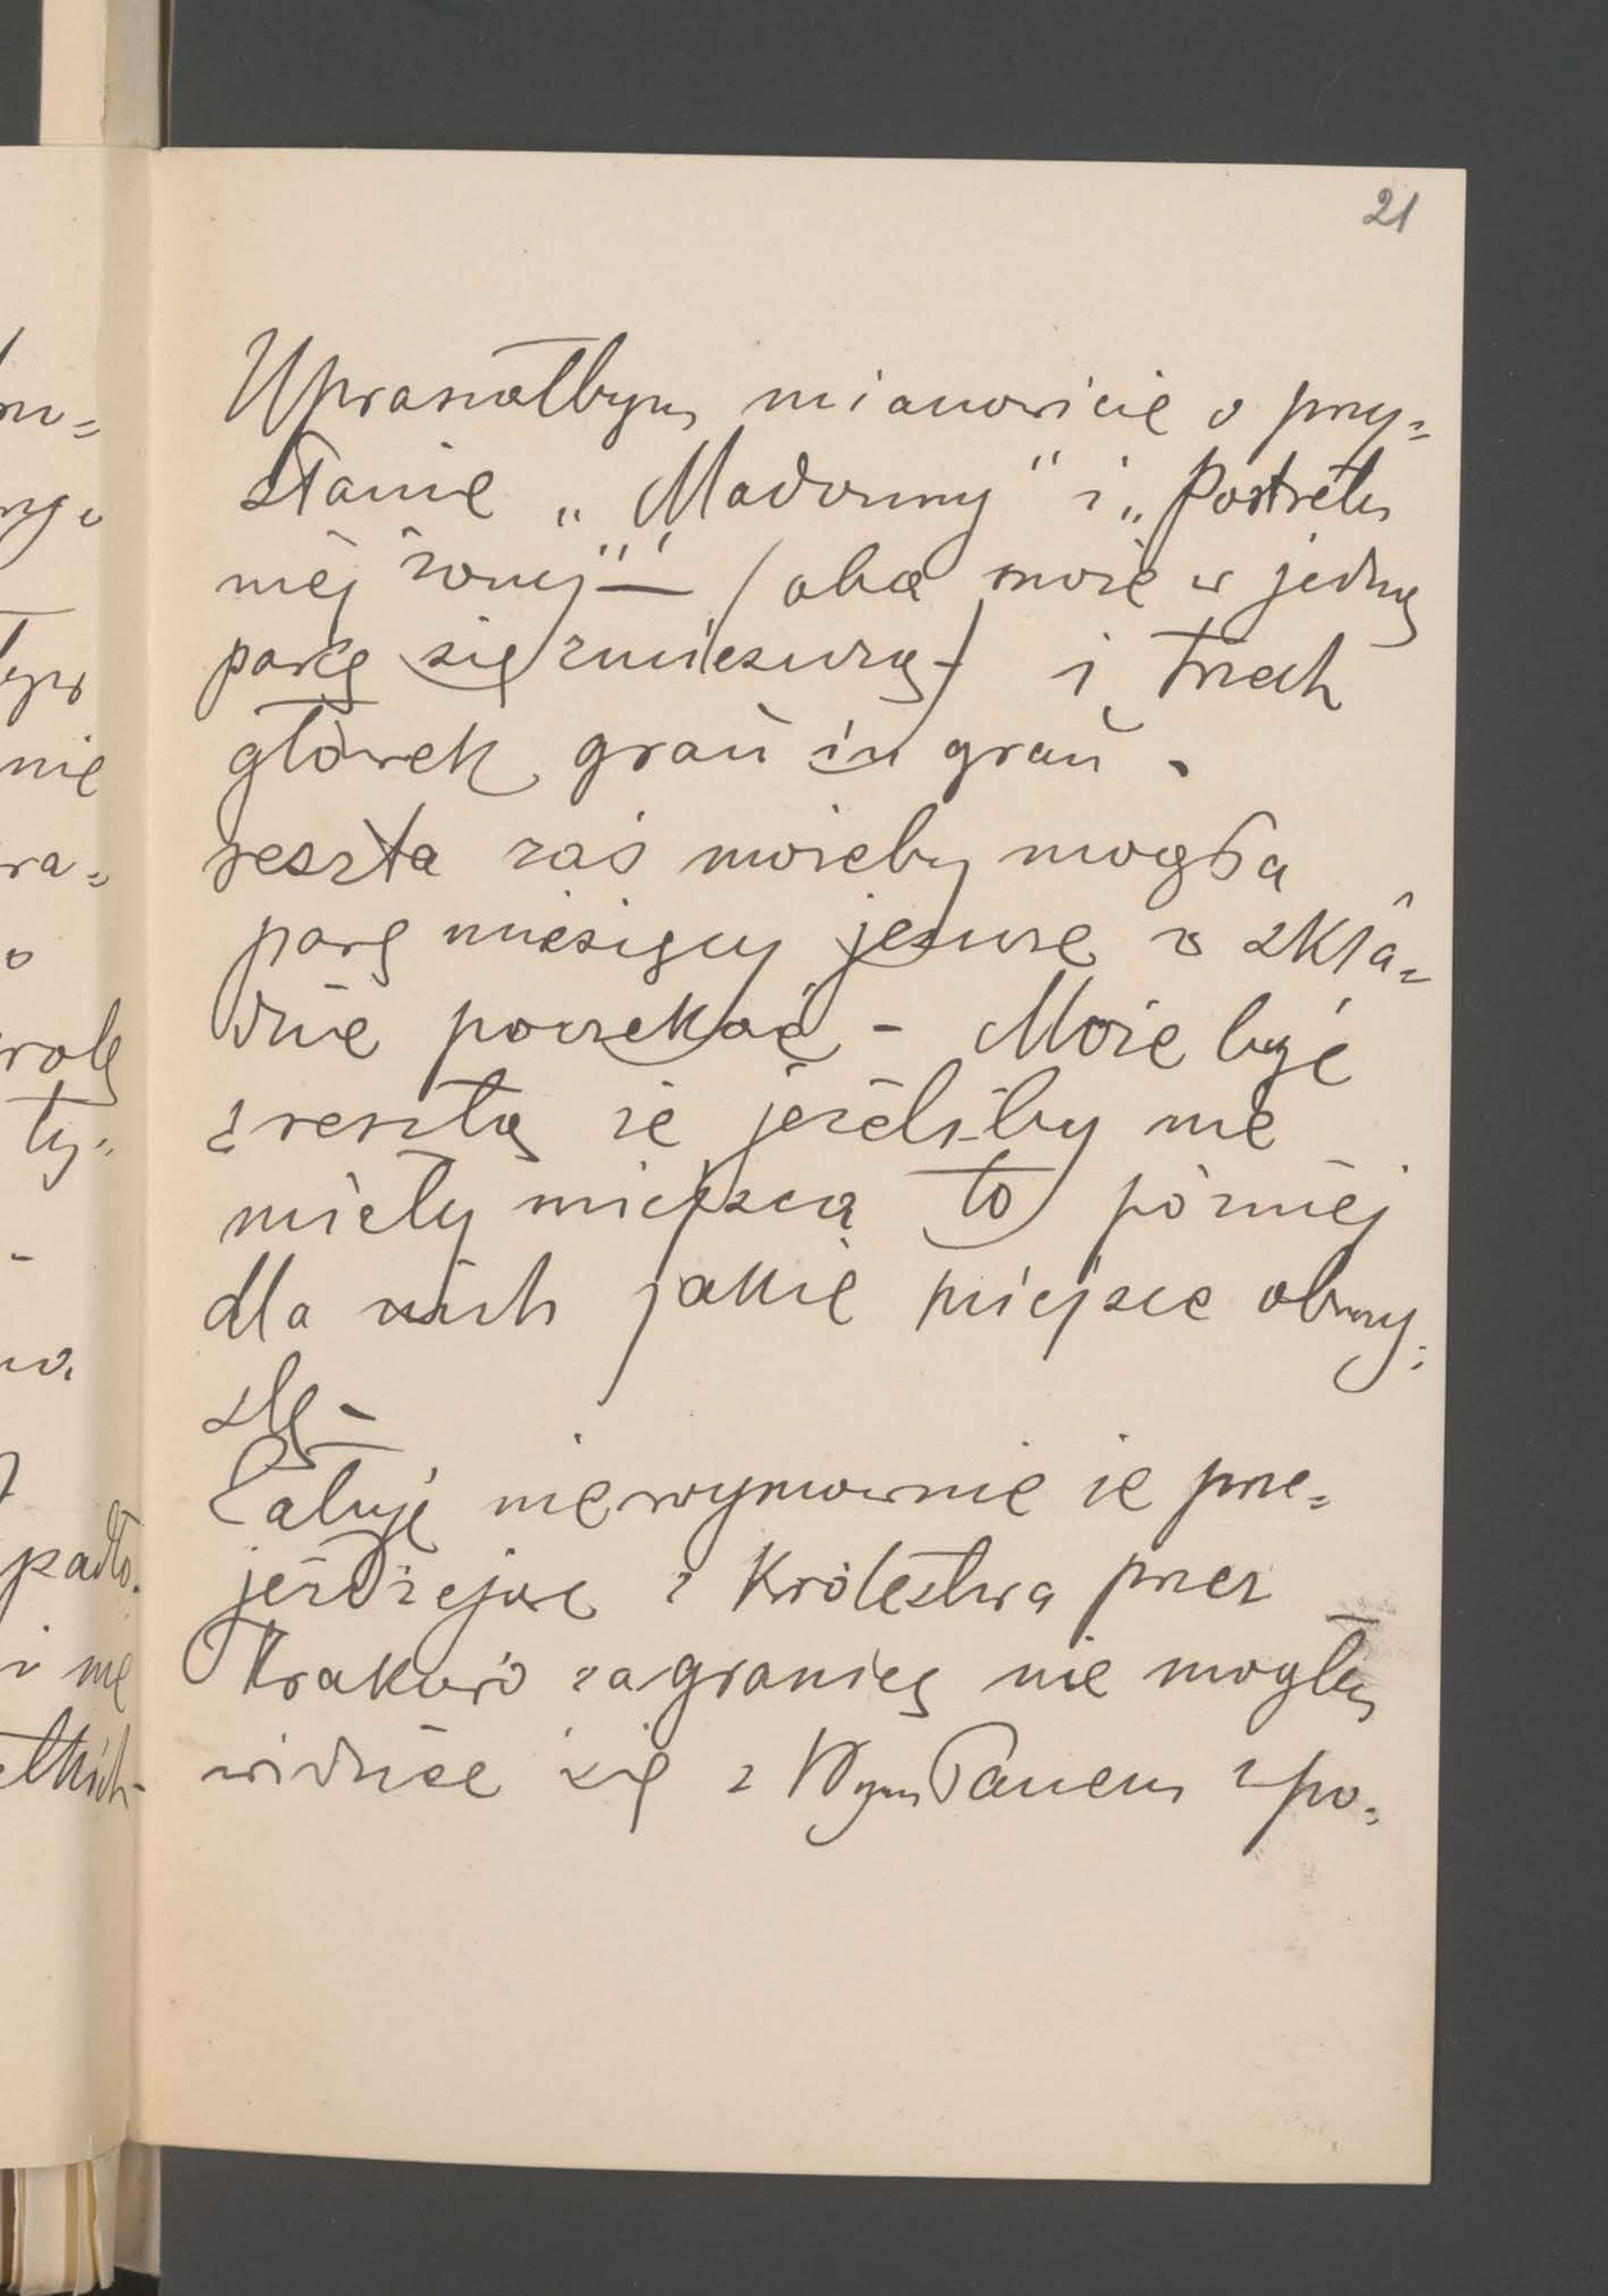 21
Upraszałbym mianowicie o przy=
słanie „Madonny" i „Portretu
mej żony" — / oba może w jedną
pakę się zmieszczą / i trzech
główek grau in grau.
reszta zaś możeby mogła
parę miesięcy jeszcze w skła=
dzie poczekać - Może być
zresztą że jeżeliby nie
miały miejsca to później
dla nich jakie miejsce obmy=
ślę -
Żałuję niewymownie że prze=
jeżdżając z Królestwa przez
Kraków zagranicę nie mogłem
widzieć się z Wym Panem z po=